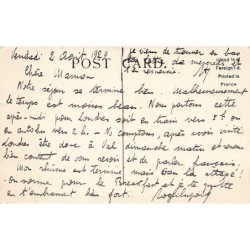 Vendredi 2 Août 1929
Chère Maman
POST CARD.
je viens de trouver en bas
de mercredi et
remercie.
Inland ½ d.
Foreign 1 d.
Printed in
France
Notre séjour se termine bien. Malheureusement
le temps est moins beau. Nous partons cette
après-midi pour Londres soit en train vers 5h ou
en autocar vers 2h. Nous comptons, après avoir visité
Londres être donc à Val dimanche matin et serons
bien content de vous revoir et de parler français.
Mon rhume est terminé mais
on sonne pour le Breakfast et je te quitte
en t'embrassant bien fort.